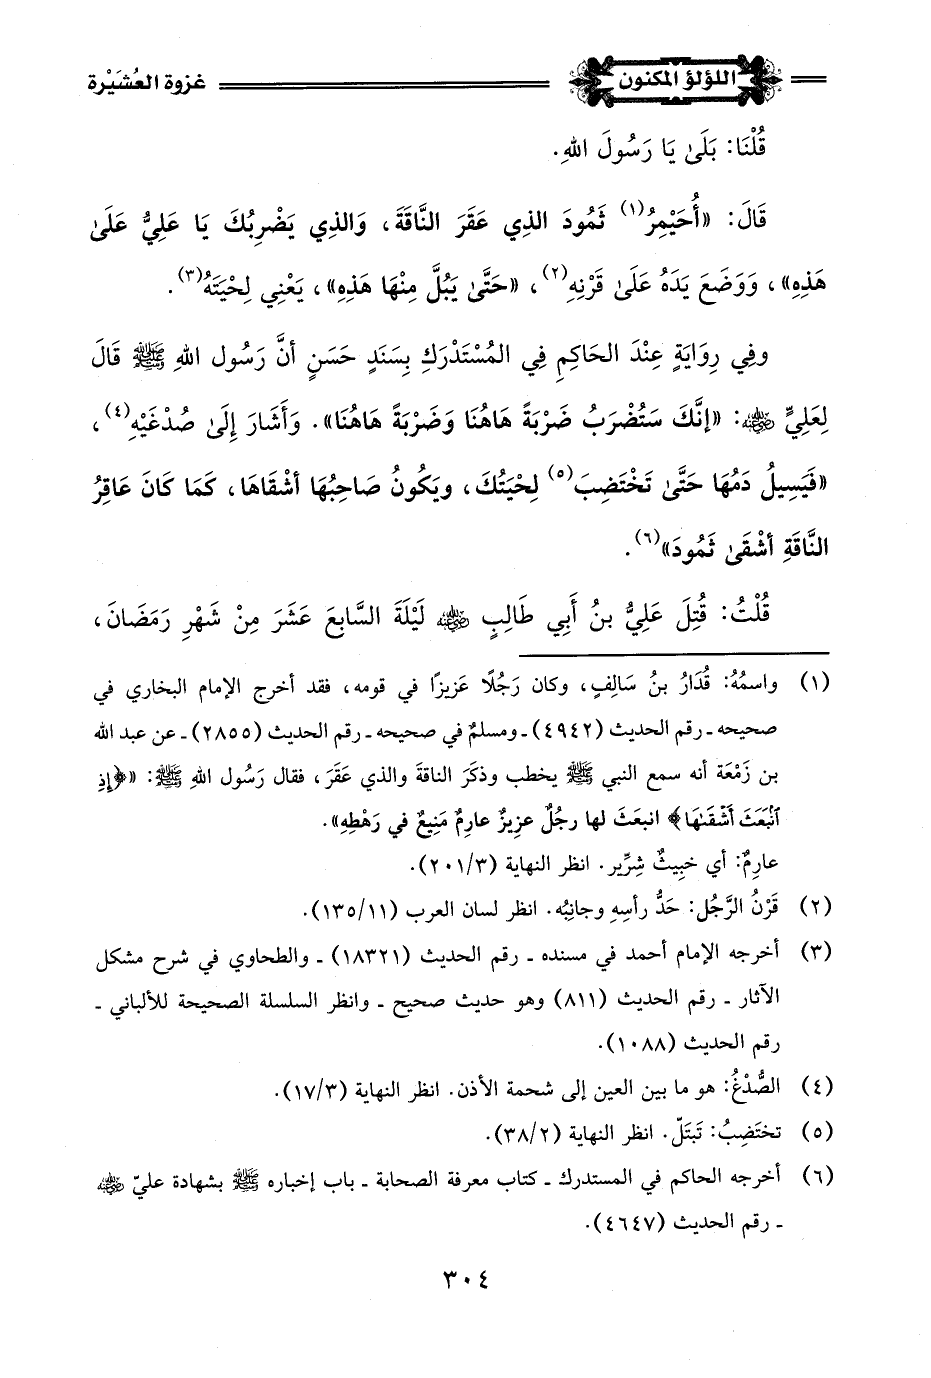 اللؤلؤ المكنون
غزوة العُشَيْرة
قُلْنَا: بَلَىٰ يَا رَسُولَ اللهِ.
قَالَ: «أُحَيْمِرُ(١) ثَمُودَ الذِي عَقَرَ النَّاقَةَ، وَالذِي يَضْرِبُكَ يَا عَلِيُّ عَلَىٰ
هَذِهِ»، وَوَضَعَ يَدَهُ عَلَىٰ قَرْنِهِ(٢)، «حَتَّىٰ يَبُلَّ مِنْهَا هَذِهِ»، يَعْنِي لِحْيَتَهُ(٣).
وفِي رِوَايَةٍ عِنْدَ الحَاكِمِ فِي المُسْتَدْرَكِ بِسَنَدٍ حَسَنٍ أنَّ رَسُول اللهِ ﷺ قَالَ
لِعَلِيٍّ رضي الله عنه: «إنَّكَ سَتُضْرَبُ ضَرْبَةً هَاهُنَا وَضَرْبَةً هَاهُنَا». وَأَشَارَ إِلَىٰ صُدْغَيْهِ(٤)،
«فَيَسِيلُ دَمُهَا حَتَّىٰ تَخْتَضِبَ(٥) لِحْيَتُكَ، ويَكُونُ صَاحِبُهَا أشْقَاهَا، كَمَا كَانَ عَاقِرُ
النَّاقَةِ أشْقَىٰ ثَمُودَ»(٦).
قُلْتُ: قُتِلَ عَلِيُّ بنُ أَبِي طَالِبٍ رضي الله عنه لَيْلَةَ السَّابِعَ عَشَرَ مِنْ شَهْرِ رَمَضَانَ،
(١) واسمُهُ: قُدَارُ بنُ سَالِفٍ، وكان رَجُلًا عَزِيزًا في قومه، فقد أخرج الإمام البخاري في
صحيحه ـ رقم الحديث (٤٩٤٢) ـ ومسلمٌ في صحيحه ـ رقم الحديث (٢٨٥٥) ـ عن عبد الله
بن زَمْعَة أنه سمع النبي ﷺ يخطب وذكَرَ الناقة والذي عَقَر، فقال رَسُول اللهِ ﷺ: «﴿إِذِ
ٱنۢبَعَثَ أَشۡقَىٰهَا﴾ انبعَثَ لها رجُلٌ عزيزٌ عارِمٌ مَنِيعٌ في رَهْطِهِ».
عارِمٌ: أي خبِيثٌ شِرِّير. انظر النهاية (٢٠١/٣).
(٢) قَرْنُ الرَّجُل: حَدُّ رأسِهِ وجانِبُه. انظر لسان العرب (١٣٥/١١).
(٣) أخرجه الإمام أحمد في مسنده ـ رقم الحديث (١٨٣٢١) ـ والطحاوي في شرح مشكل
الآثار ـ رقم الحديث (٨١١) وهو حديث صحيح ـ وانظر السلسلة الصحيحة للألباني ـ
رقم الحديث (١٠٨٨).
(٤) الصُّدْغُ: هو ما بين العين إلى شحمة الأذن. انظر النهاية (١٧/٣).
(٥) تختَضِبُ: تَبتَلّ. انظر النهاية (٣٨/٢).
(٦) أخرجه الحاكم في المستدرك ـ كتاب معرفة الصحابة ـ باب إخباره ﷺ بشهادة عليّ رضي الله عنه
ـ رقم الحديث (٤٦٤٧).
٣٠٤